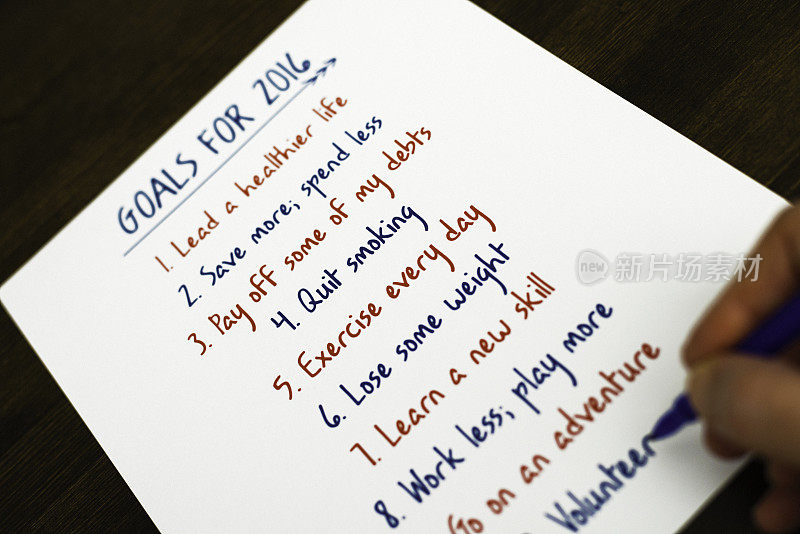 GOALS FOR 2016 >>>
1. Lead a healthier life
2. Save more; spend less
3. Pay off some of my debts
4. Quit smoking
5. Exercise every day
6. Lose some weight
7. Learn a new skill
8. Work less; play more
Go on an adventure
Volunteer
new 新片场 VCG™